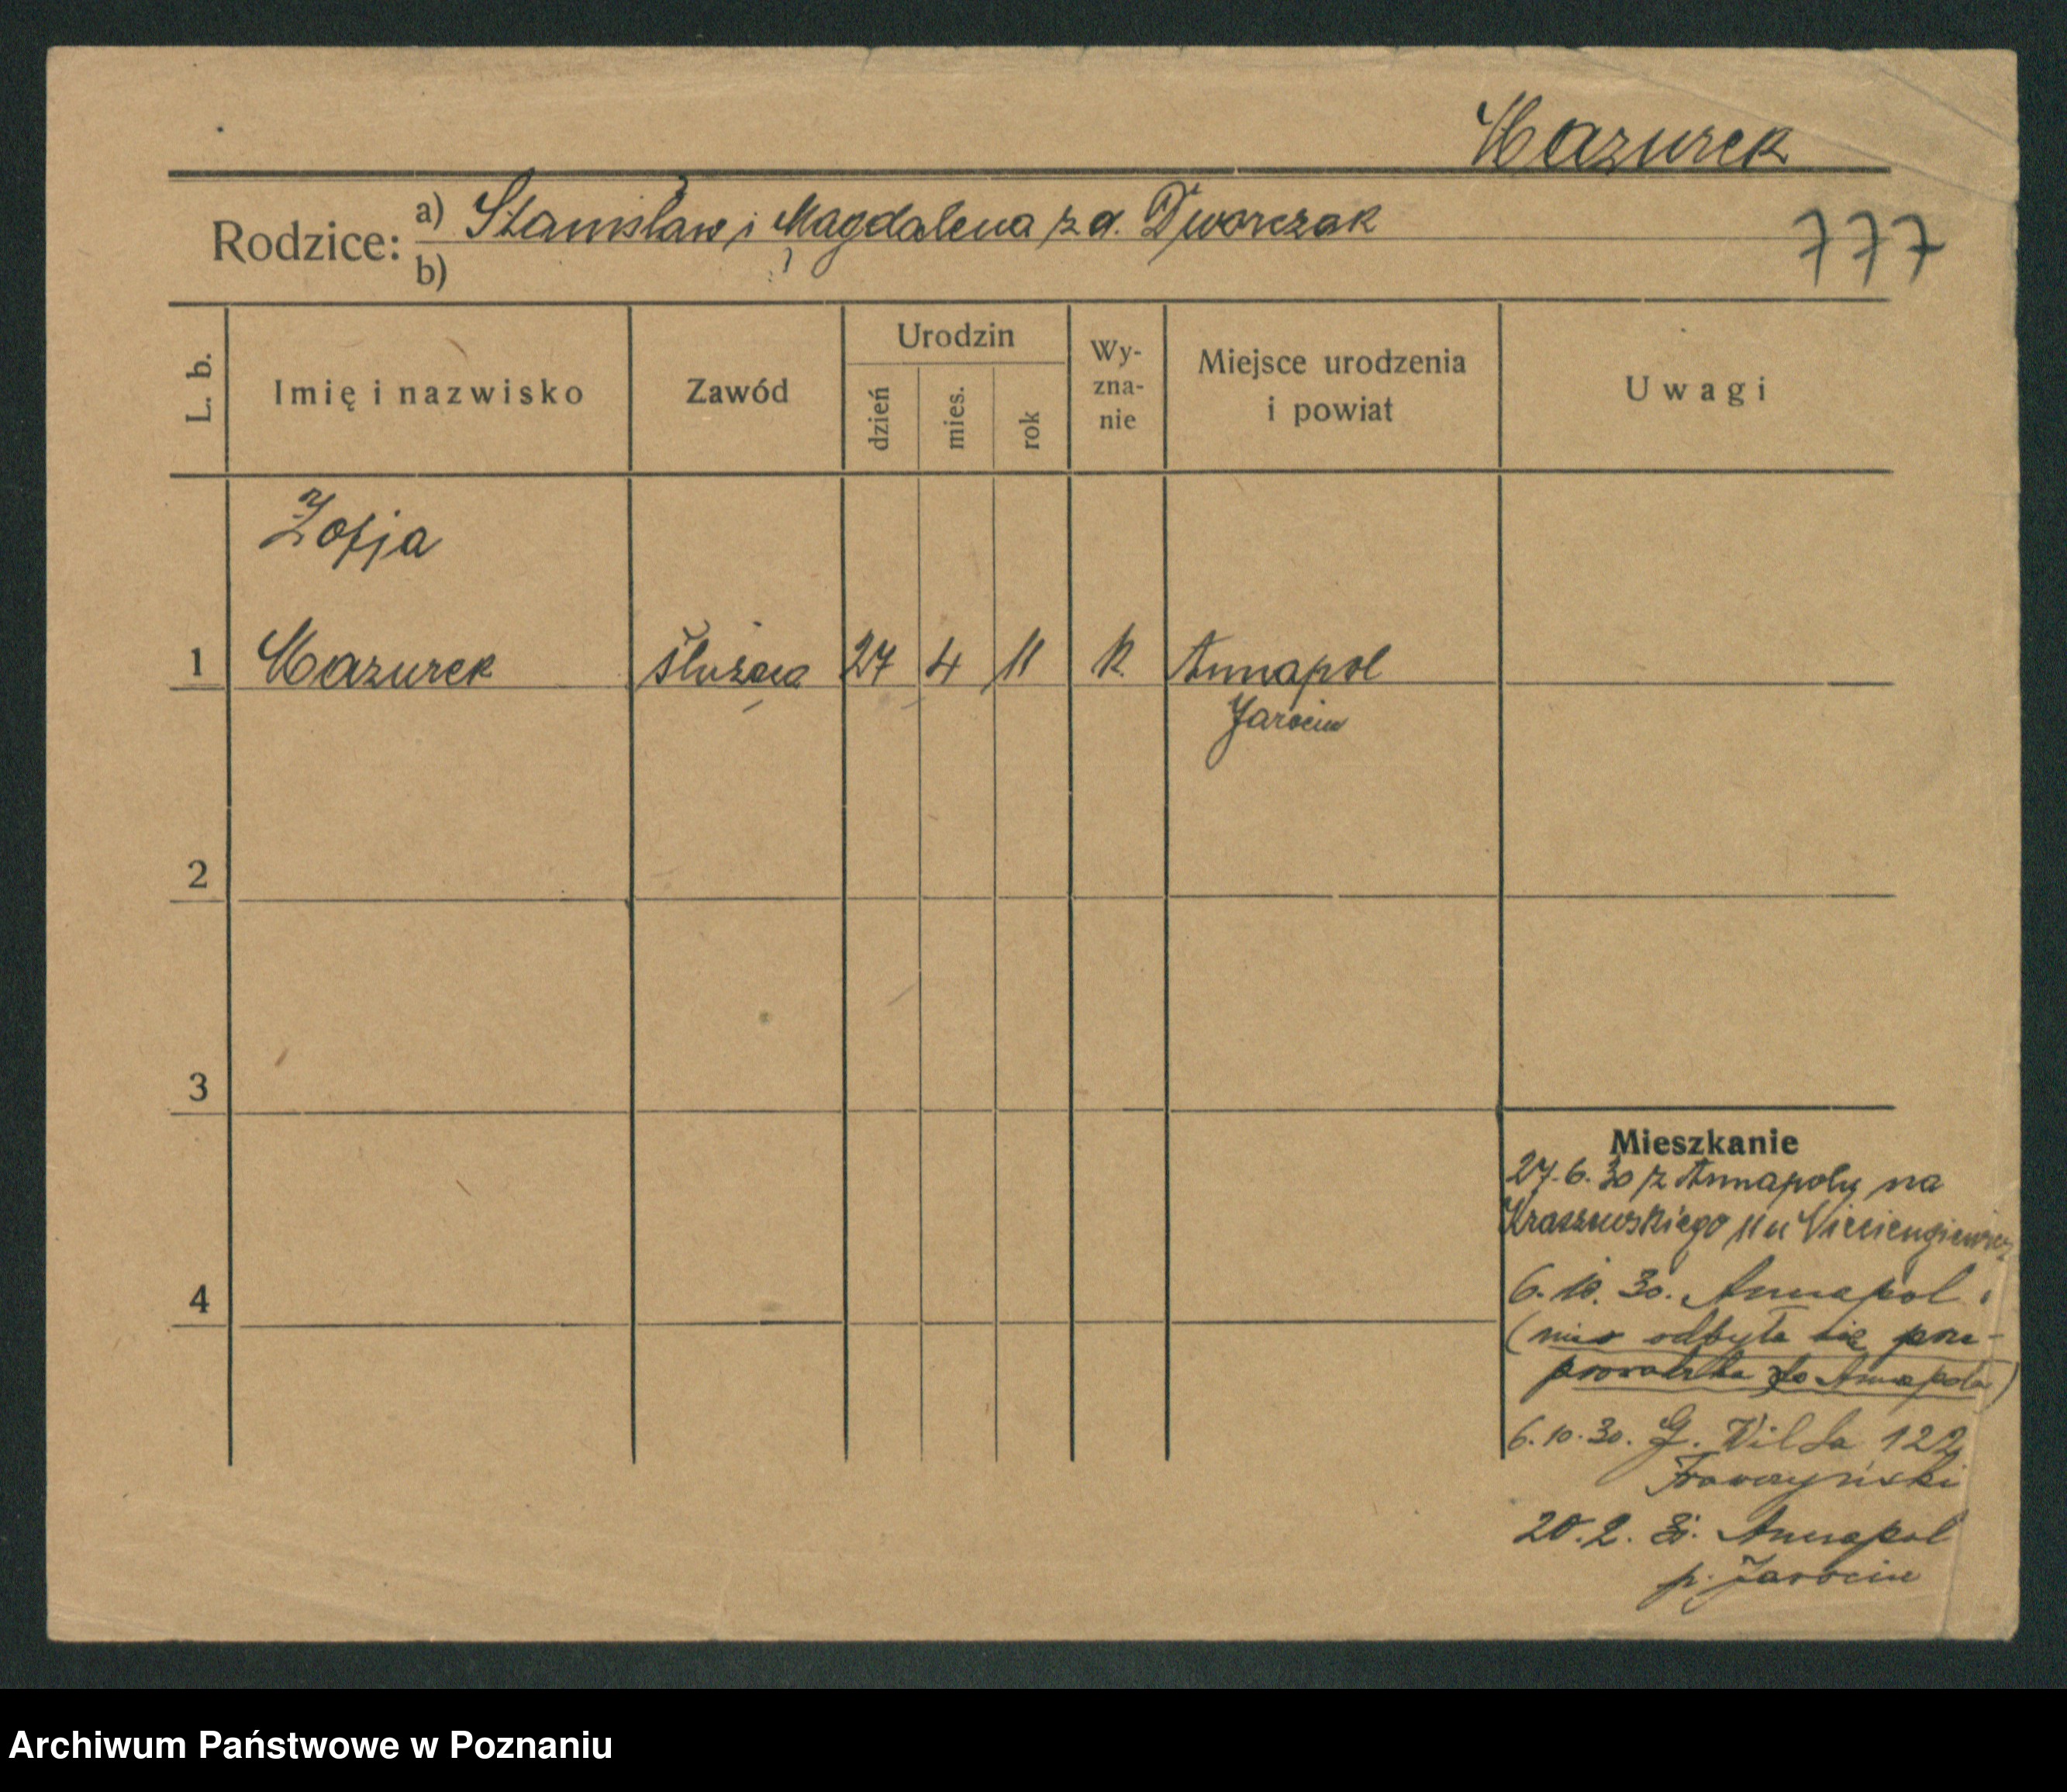 Mazurek
Rodzice: a) Stanisław i Magdalena z d. Dworczak
b)
777
L. b.
Imię i nazwisko
Zawód
Urodzin
dzień
mies.
rok
Wy-
zna-
nie
Miejsce urodzenia
i powiat
Uwagi
Zofja
1 Mazurek służąca 27 4 11 k. Annapol
Jarocin
2
3
4
Mieszkanie
27.6.30 z Annapolu na
Kraszewskiego 11 u
6.10.30. Annapol
(nie odbyła się prze-
prowadzka do Annapola)
6.10.30. G. Wilda 122
20.2. Annapol
p. Jarocin
Archiwum Państwowe w Poznaniu